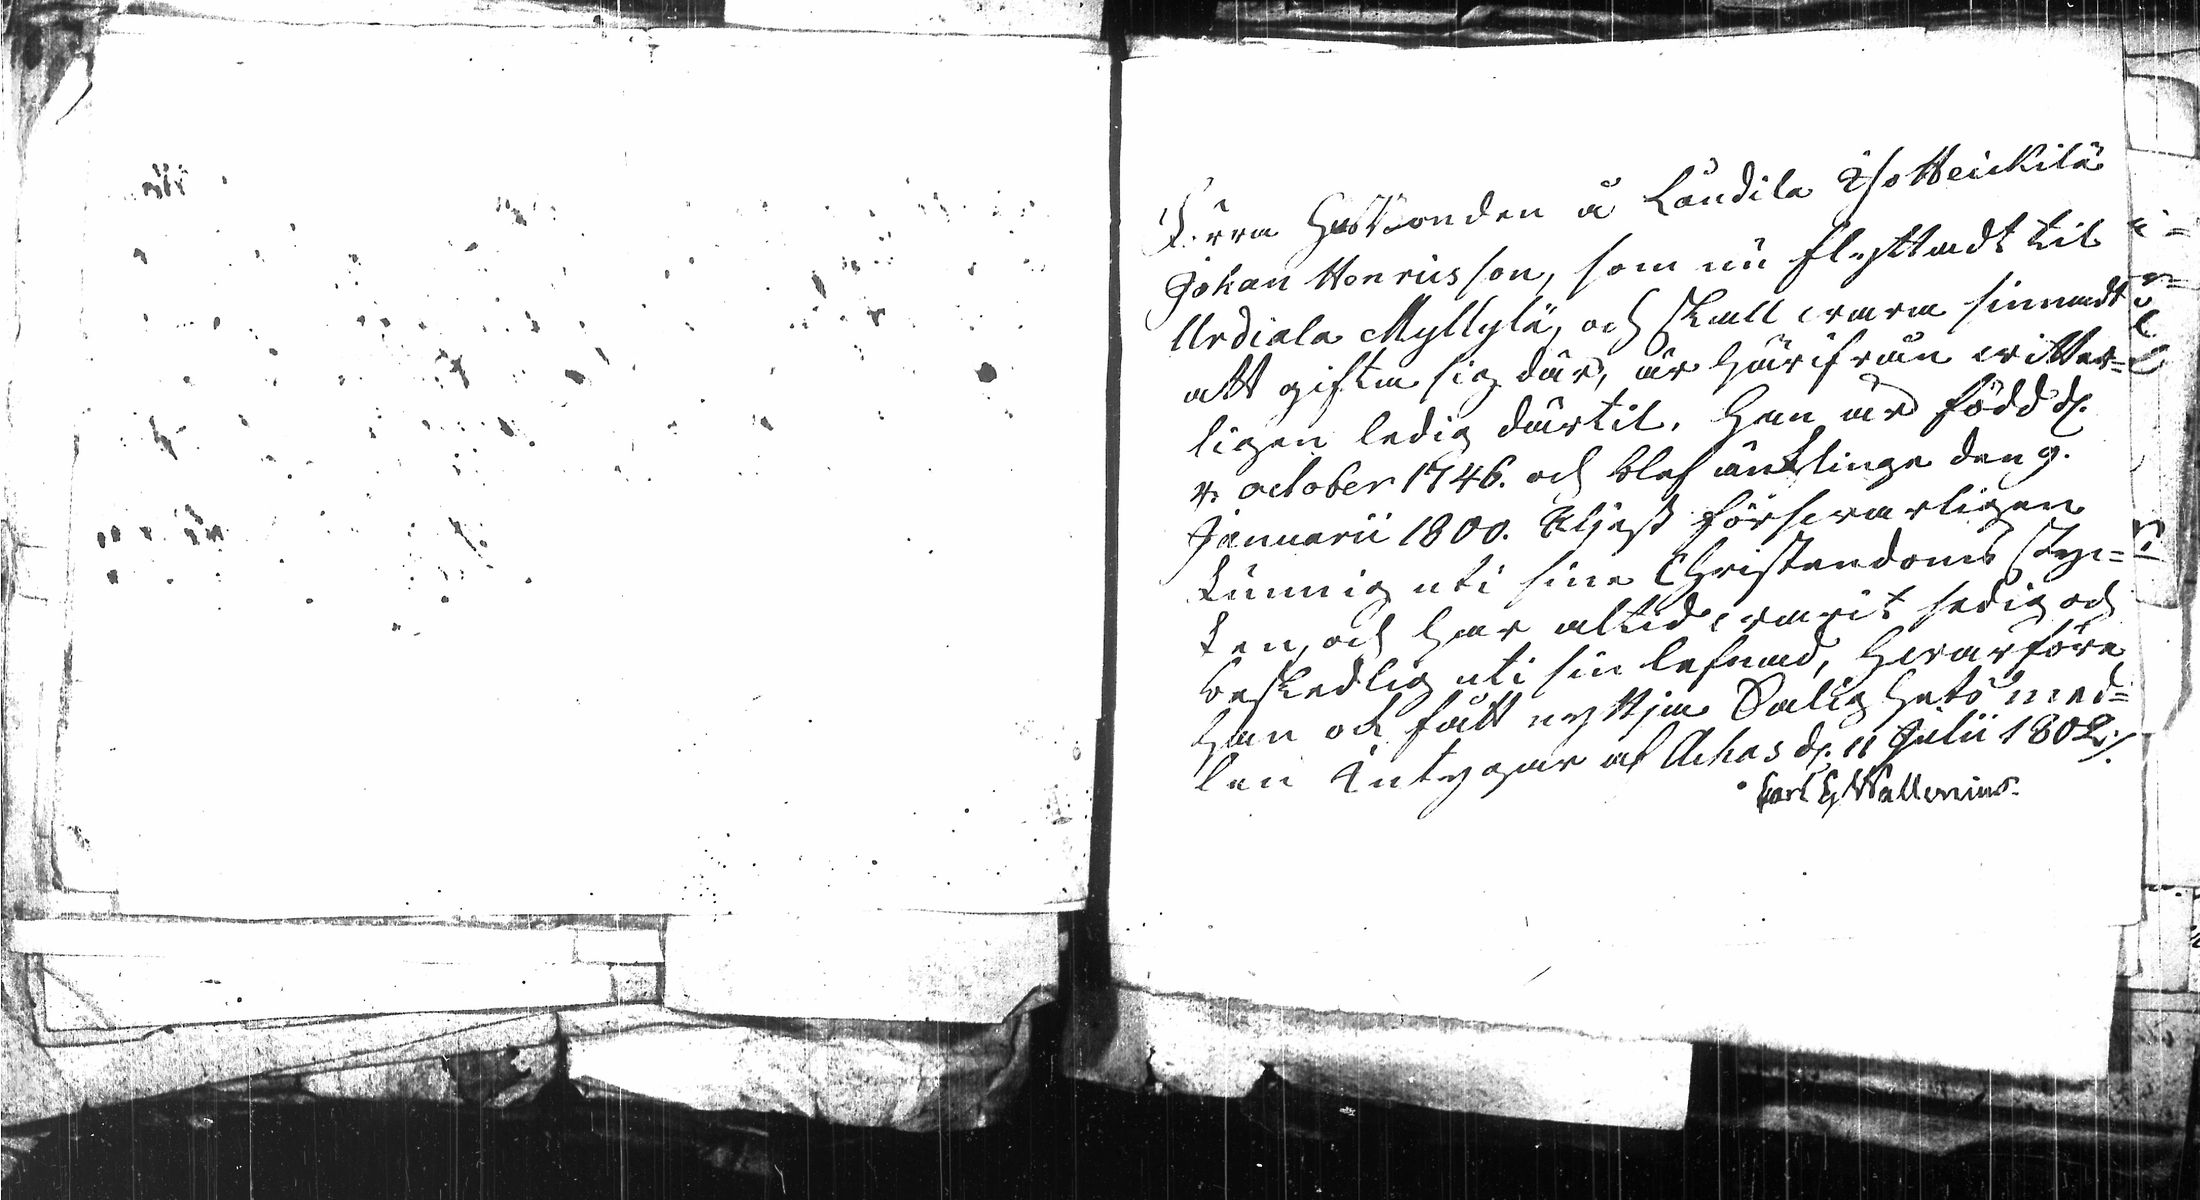 Förra Husbonden å Laudila Iso Heickilä
Johan Henricsson, som nu flyttadt til
Urdiala Myllylä, och skall wara sinnadt
att gifta sig där, är härifrån witter=
ligen ledig därtil. Han är född d.
4. October 1746. och blef änkling den 9.
Januarii 1800. Äljest försvarligen
kunnig uti sine Christendoms styc=
ken, och har altid warit sedig och
beskedlig uti sin lefnad, hvarföre
han ock fått nyttja Salighets med=
len Intygar af Ackas d. 11 Julii 1802./.
Carl G Wallenius.